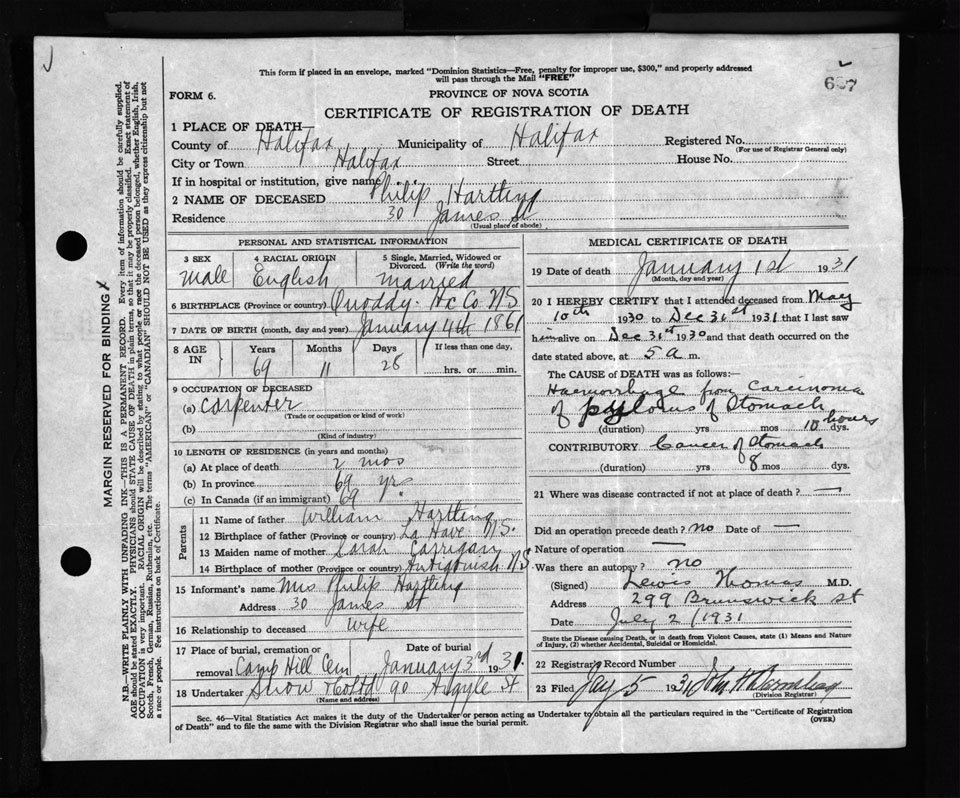 This form if placed in an envelope, marked "Dominion Statistics—Free, penalty for improper use, $300," and properly addressed
will pass through the Mail "FREE"
FORM 6.
PROVINCE OF NOVA SCOTIA
CERTIFICATE OF REGISTRATION OF DEATH
1 PLACE OF DEATH—
County of Halifax Municipality of Halifax Registered No.
(For use of Registrar General only)
City or Town Halifax Street House No.
If in hospital or institution, give name
2 NAME OF DECEASED Philip Hartling
Residence 30 James St
(Usual place of abode)
PERSONAL AND STATISTICAL INFORMATION
3 SEX 4 RACIAL ORIGIN 5 Single, Married, Widowed or
Divorced. (Write the word)
Male English Married
6 BIRTHPLACE (Province or country) Quoddy Hx Co NS
7 DATE OF BIRTH (month, day and year) January 4th 1861
8 AGE IN Years Months Days If less than one day,
69 11 28 hrs. or min.
9 OCCUPATION OF DECEASED
(a) Carpenter
(Trade or occupation or kind of work)
(b)
(Kind of industry)
10 LENGTH OF RESIDENCE (in years and months)
(a) At place of death 2 mos
(b) In province 69 yrs
(c) In Canada (if an immigrant) 69 "
Parents
11 Name of father William Hartling
12 Birthplace of father (Province or country) La Have N.S.
13 Maiden name of mother Sarah Corrigan
14 Birthplace of mother (Province or country) Antigonish NS
15 Informant's name Mrs Philip Hartling
Address 30 James St
16 Relationship to deceased Wife
17 Place of burial, cremation or Date of burial
removal Camp Hill Cem January 3rd 1931.
18 Undertaker Snow & Co Ltd 90 Argyle St
(Name and address)
MEDICAL CERTIFICATE OF DEATH
19 Date of death January 1st 1931
(Month, day and year)
20 I HEREBY CERTIFY that I attended deceased from May
10th 1930 to Dec 31st 1931 that I last saw
him alive on Dec 31st 1930 and that death occurred on the
date stated above, at 5 a m.
The CAUSE OF DEATH was as follows:—
Haemorrhage from Carcinoma
of pylorus of Stomach
(duration) yrs mos 10 hours dys.
CONTRIBUTORY Cancer of Stomach
(duration) yrs 8 mos dys.
21 Where was disease contracted if not at place of death? —
Did an operation precede death? No Date of —
Nature of operation —
Was there an autopsy? No
(Signed) Lewis Thomas M.D.
Address 299 Brunswick St
Date July 2/1931
State the Disease causing Death, or in death from Violent Causes, state (1) Means and Nature
of Injury, (2) whether Accidental, Suicidal or Homicidal.
22 Registrar's Record Number
23 Filed Jay 5 1931
(Division Registrar)
Sec. 46—Vital Statistics Act makes it the duty of the Undertaker or person acting as Undertaker to obtain all the particulars required in the "Certificate of Registration
of Death" and to file the same with the Division Registrar who shall issue the burial permit.
(OVER)
MARGIN RESERVED FOR BINDING
N.B.—WRITE PLAINLY WITH UNFADING INK—THIS IS A PERMANENT RECORD. Every item of information should be carefully supplied.
AGE should be stated EXACTLY. PHYSICIANS should STATE CAUSE OF DEATH in plain terms, so that it may be properly classified. Exact statement of
OCCUPATION is very important. RACIAL ORIGIN will be described by stating to what people or race the deceased person belonged, whether English, Irish,
Scotch, French, German, Russian, Ruthenian, etc. The terms "AMERICAN" or "CANADIAN" SHOULD NOT BE USED as they express citizenship but not
a race or people. See instructions on back of Certificate.